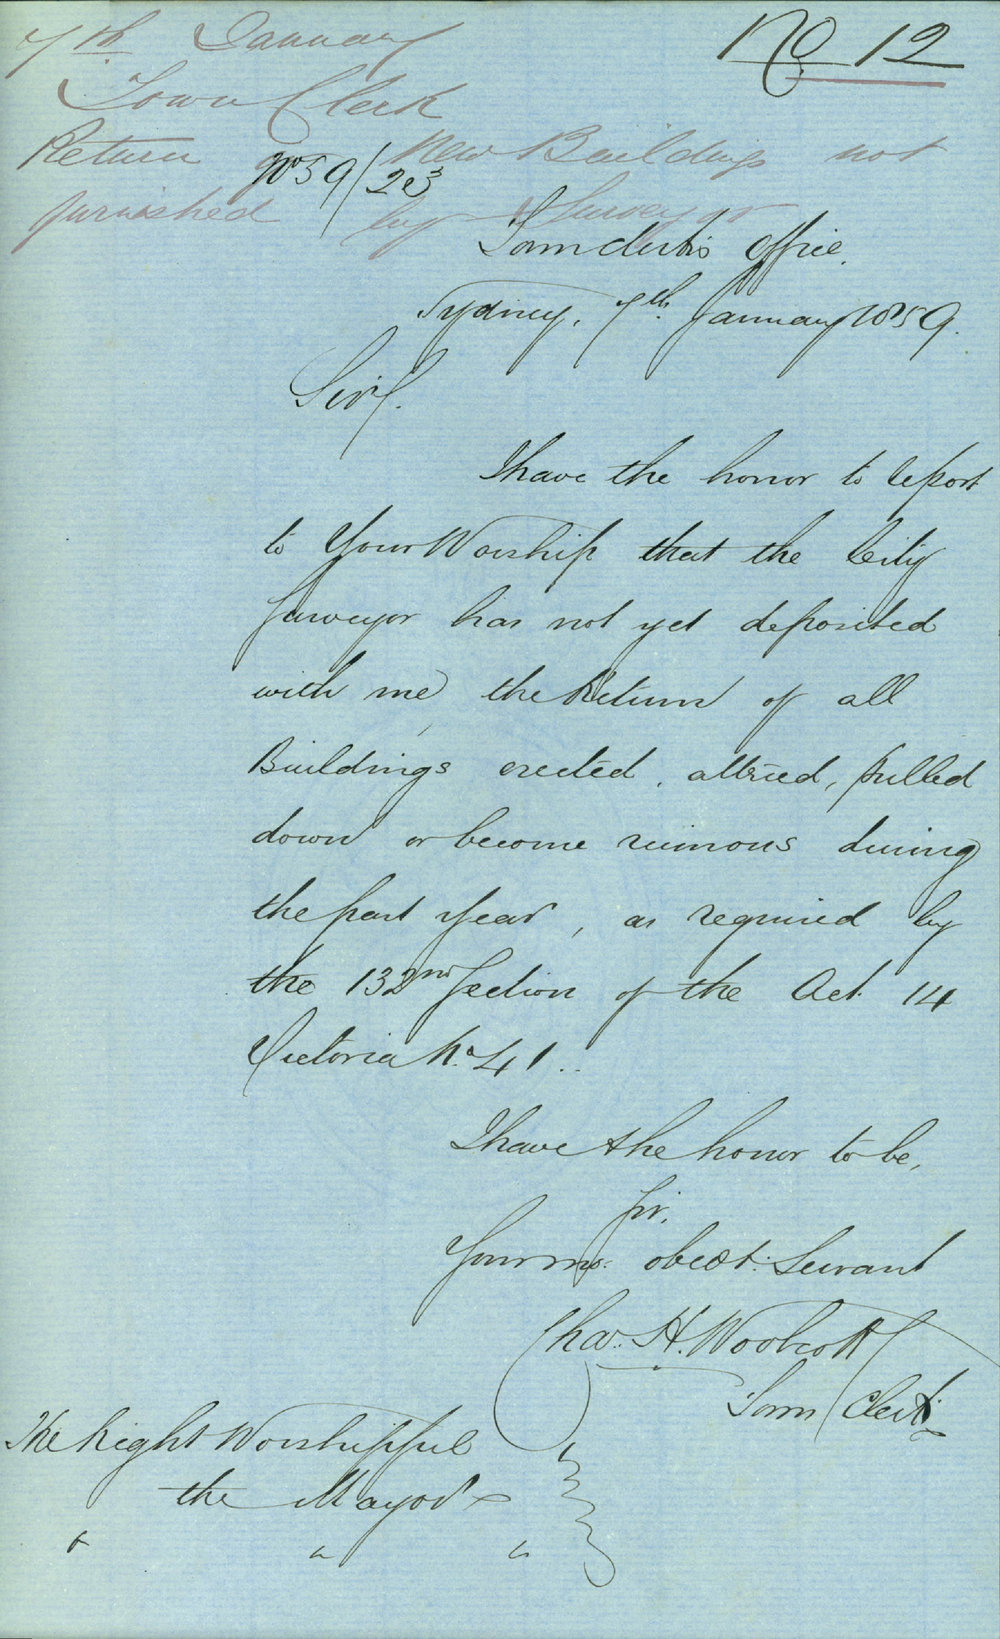 7th January
No 12
Town Clerk
Return of New Buildings not
No 59/23
furnished by Surveyor
Town Clerk's Office.
Sydney, 7th January 1859.
Sir,
I have the honor to report
to Your Worship that the City
Surveyor has not yet deposited
with me the Return of all
Buildings erected, altered, pulled
down or become ruinous during
the past year, as required by
the 132nd Section of the Act 14
Victoria No. 41..
I have the honor to be,
Sir,
Your mo: obedt: Servant
Chas. H. Woolcott
Town Clerk
The Right Worshipful
the Mayor
" " "